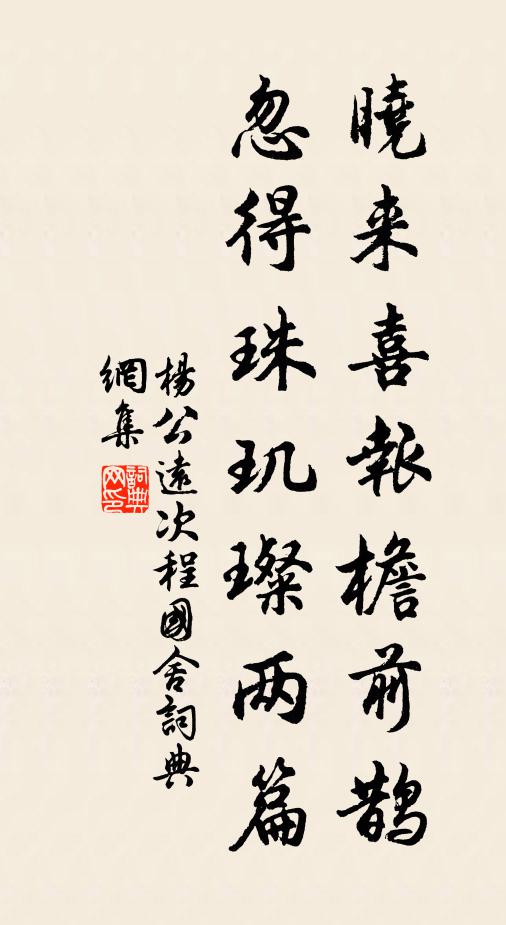 曉来喜報檐前鹊
忽得珠玑璨两篇
楊公遠次程國舍詞典
網集
詞典网印